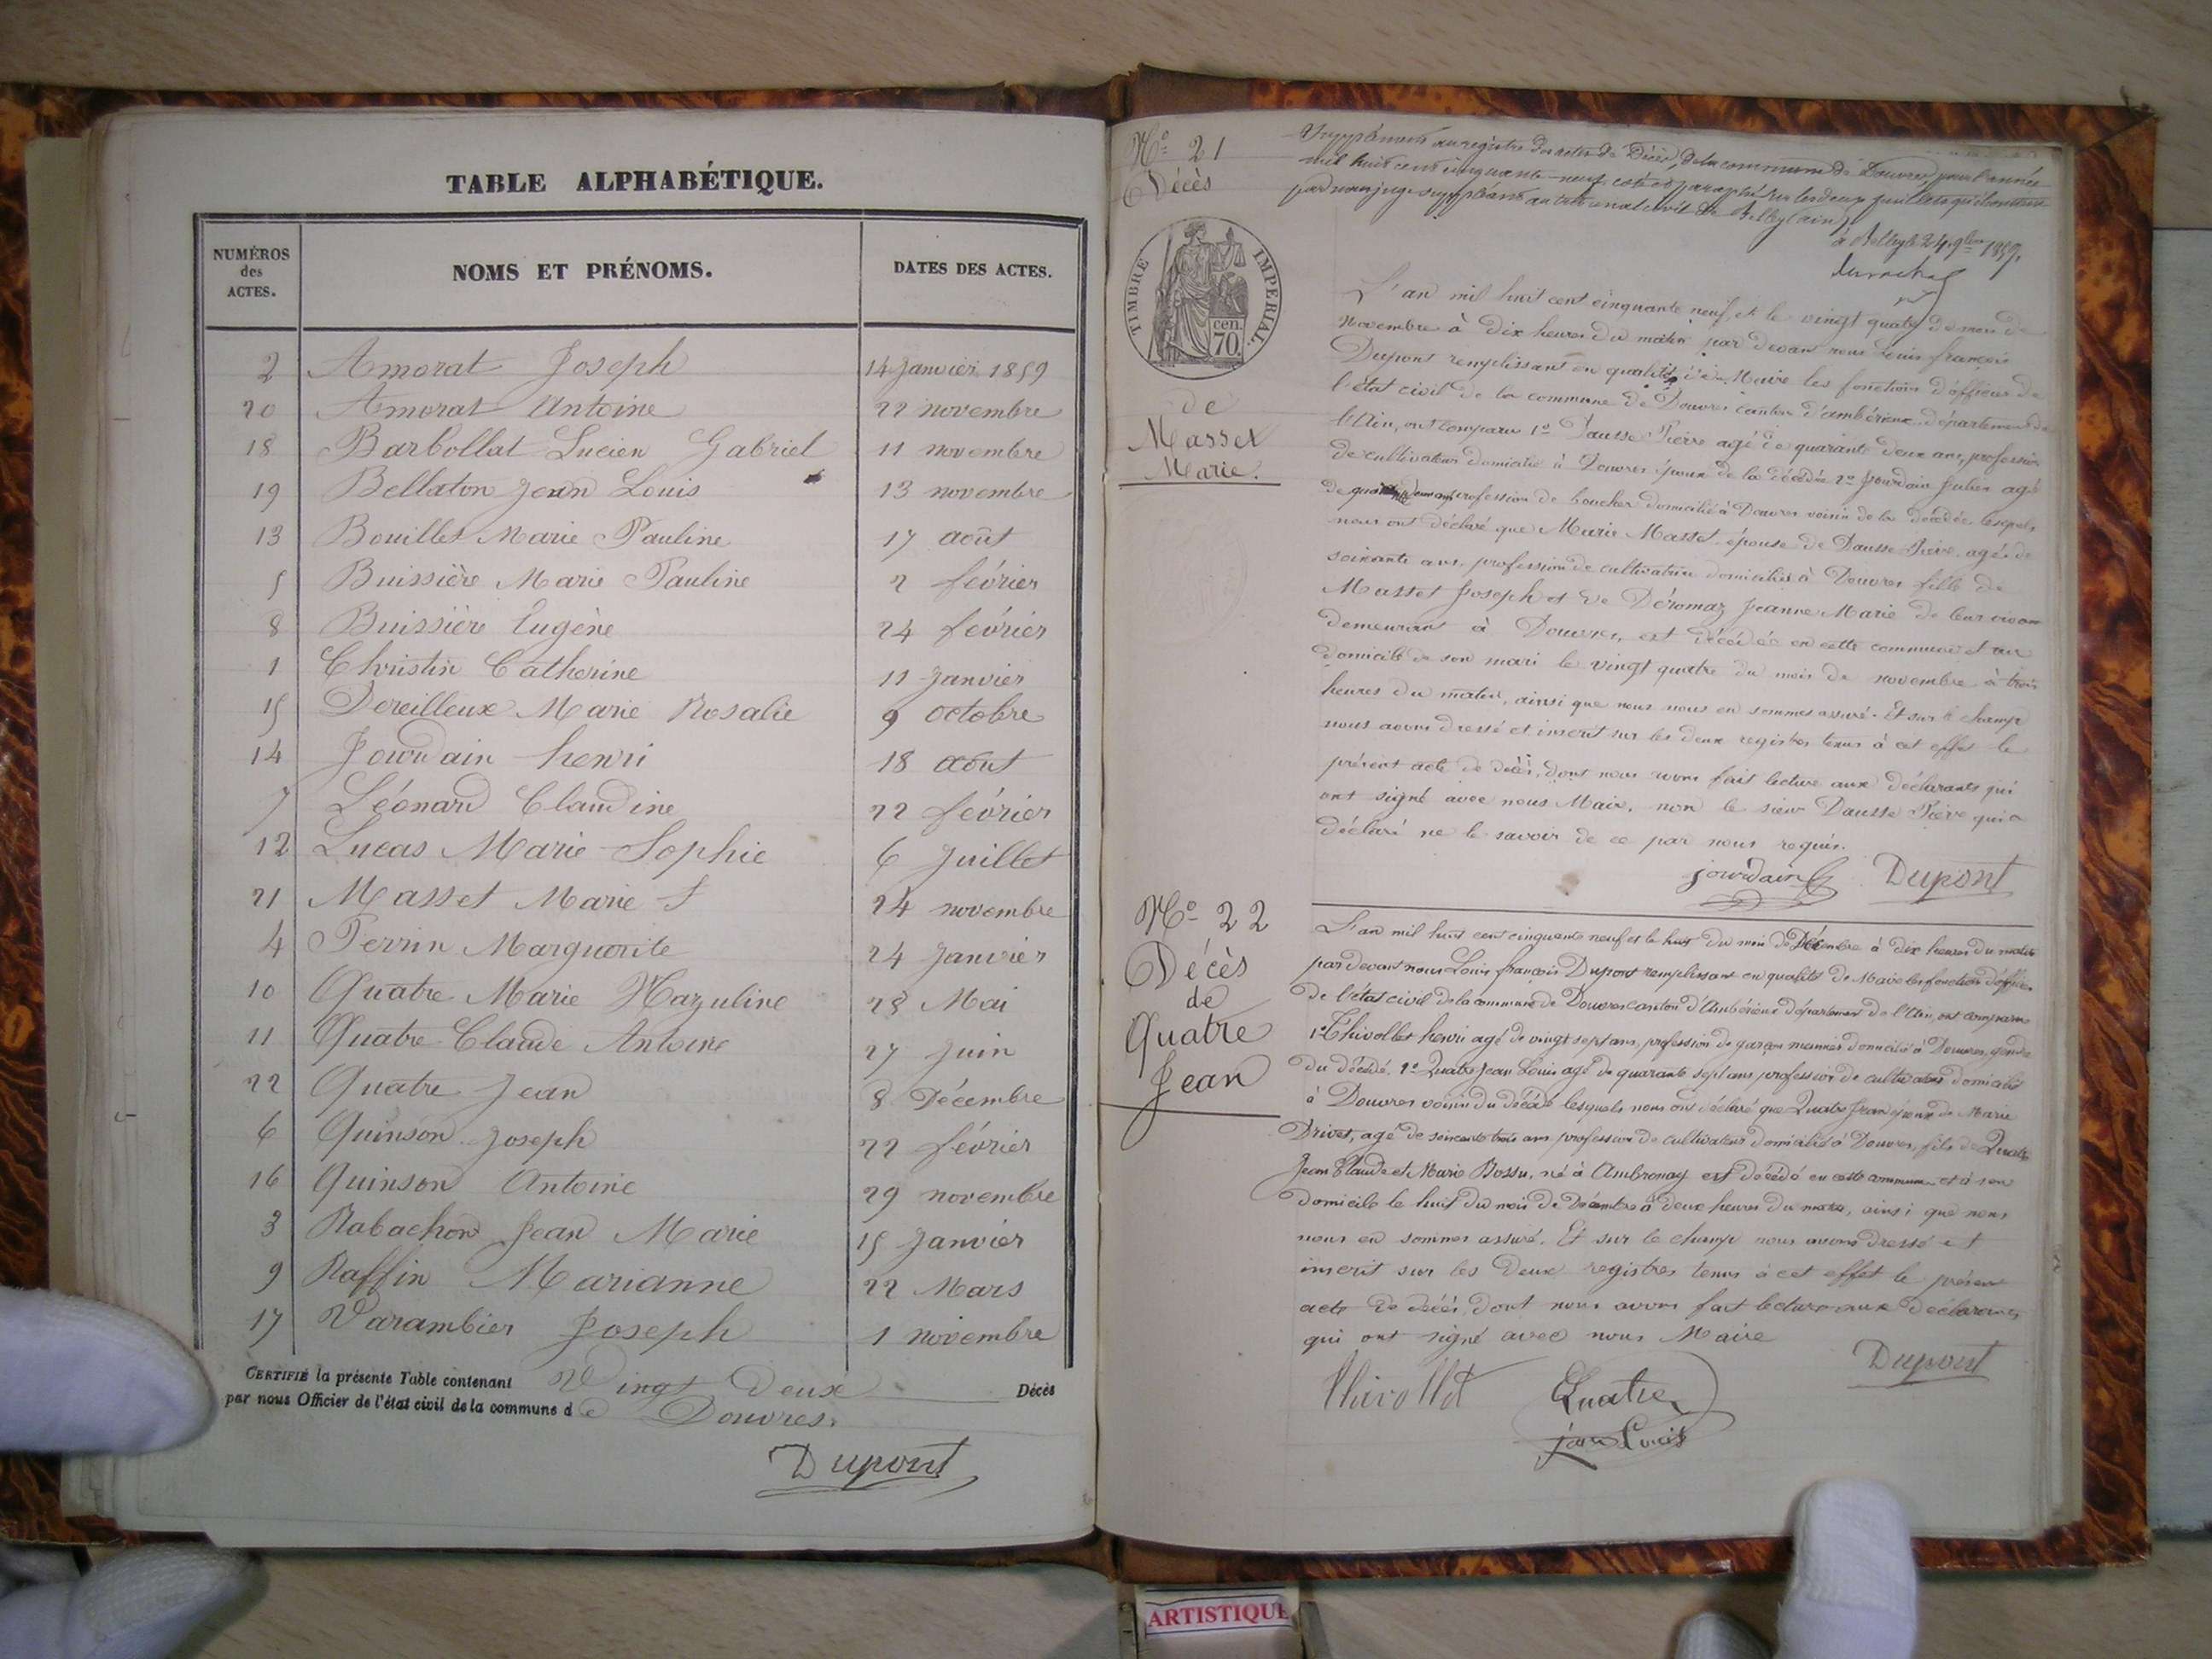 TABLE ALPHABÉTIQUE.
NUMÉROS des ACTES.
NOMS ET PRÉNOMS.
DATES DES ACTES.
2 Amorat Joseph 14 Janvier 1859
20 Amorat Antoine 22 novembre
18 Barbollat Lucien Gabriel 11 novembre
19 Bellaton Jean Louis 13 novembre
13 Bouillet Marie Pauline 17 août
5 Buissière Marie Pauline 2 février
8 Buissière Eugène 24 février
1 Christin Catherine 11 Janvier
15 Dereilleux Marie Rosalie 9 octobre
14 Jourdain henri 18 août
7 Léonard Claudine 22 février
12 Lucas Marie Sophie 6 Juillet
21 Masset Marie 24 novembre
4 Perrin Marguerite 24 Janvier
10 Quatre Marie Mazuline 28 Mai
11 Quatre Claude Antoine 27 Juin
22 Quatre Jean 8 Décembre
6 Quinson Joseph 22 février
16 Quinson Antoine 29 novembre
3 Rabachon Jean Marie 15 Janvier
9 Raffin Marianne 22 Mars
17 Varambier Joseph 1 novembre
CERTIFIÉ la présente Table contenant Vingt Deux Décès
par nous Officier de l'état civil de la commune de Douvres.
Dupont
No 21
Décès
TIMBRE IMPERIAL.
cen.
70.
de
Masset
Marie.
Supplément au registre des actes de Décès, de la commune de Douvres, pour l'année
mil huit cent cinquante-neuf, coté et paraphé sur les deux feuillets qu'il contient
par nous juge suppléant au tribunal civil de Belley (ain)
à Belley le 24 9bre 1859.
L'an mil huit cent cinquante neuf, et le vingt quatre du mois de
Novembre à dix heures du matin par devant nous Louis françois
Dupont remplissant en qualité de Maire les fonctions d'officier de
l'état civil de la commune de Douvres canton d'ambérieux département de
l'Ain, ont comparu 1o Dausse Pierre agé de quarante deux ans, profession
de cultivateur domicilié à Douvres époux de la décédée 2o Jourdain Julien agé
de profession de boucher domicilié à Douvres voisin de la décédée lesquels
nous ont déclaré que Marie Masset épouse de Dausse Pierre agée de
soixante ans profession de cultivatrice domiciliée à Douvres fille de
Masset Joseph et de Déromaz Jeanne Marie de leur vivant
demeurant à Douvres, est décédée en cette commune et au
domicile de son mari le vingt quatre du mois de novembre à trois
heures du matin, ainsi que nous nous en sommes assuré. Et sur le champ
nous avons dressé et inscrit sur les deux registres tenus à cet effet le
présent acte de décès, dont nous avons fait lecture aux déclarants qui
ont signé avec nous Maire, non le sieur Dausse Pierre qui a
déclaré ne le savoir de ce par nous requis.
jourdain Dupont
No 22
Décès
de
Quatre
Jean
L'an mil huit cent cinquante neuf et le huit du mois de Décembre à dix heures du matin
par devant nous Louis françois Dupont remplissant en qualité de Maire les fonctions d'officier
de l'état civil de la commune de Douvres canton d'Ambérieux département de l'Ain, ont comparu
1o Thivollet henri agé de vingt sept ans, profession de garçon meunier domicilié à Douvres, gendre
du décédé. 2o Quatre Jean Louis agé de quarante sept ans profession de cultivateur domicilié
à Douvres voisin du décédé lesquels nous ont déclaré que Quatre Jean époux de Marie
Drivet, agé de soixante trois ans profession de cultivateur domicilié à Douvres, fils de Quatre
Jean Claude et Marie Bossu, né à Ambronay est décédé en cette commune et à son
domicile le huit du mois de Décembre à deux heures du matin, ainsi que nous
nous en sommes assuré. Et sur le champ nous avons dressé et
inscrit sur les deux registres tenus à cet effet le présent
acte de décès, dont nous avons fait lecture aux déclarants
qui ont signé avec nous Maire
Thivollet Quatre Dupont
jean Louis
ARTISTIQUE